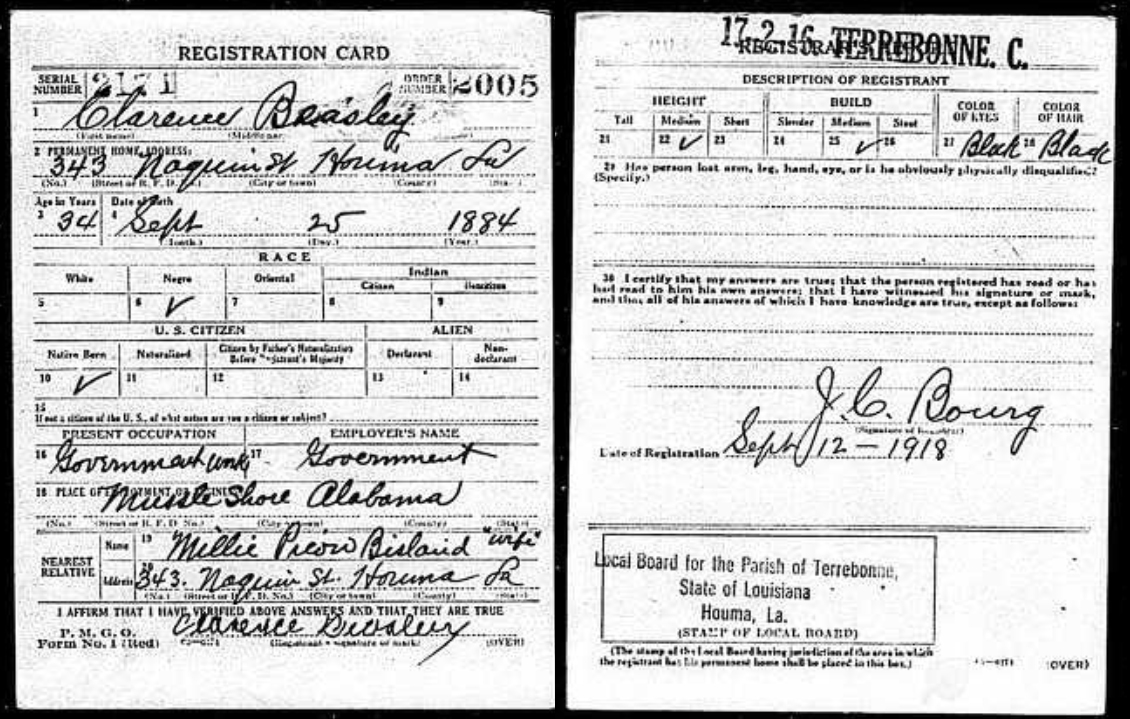 REGISTRATION CARD
SERIAL NUMBER 2171 ORDER NUMBER 2005
1 Clarence Beasley
(First name) (Middle name)
2 PERMANENT HOME ADDRESS:
343 Naquin St Houma La
(No.) (Street or R. F. D. No.) (City or town) (County) (State)
Age in Years Date of Birth
3 34 4 Sept 25 1884
(Month.) (Day.) (Year.)
RACE
White Negro Oriental Indian
Citizen Noncitizen
5 6 ✓ 7 8 9
U. S. CITIZEN ALIEN
Native Born Naturalized Citizen by Father's Naturalization Before Registrant's Majority Declarant Non-declarant
10 ✓ 11 12 13 14
15
If not a citizen of the U. S., of what nation are you a citizen or subject?
PRESENT OCCUPATION EMPLOYER'S NAME
16 Government work 17 Government
18 PLACE OF EMPLOYMENT OR BUSINESS
Mussle Shore Alabama
(No.) (Street or R. F. D. No.) (City or town) (County) (State)
NEAREST RELATIVE Name 19 Millie Bisland "wife"
Address 20 343. Naquin St. Houma La
(No.) (Street or R. F. D. No.) (City or town) (County) (State)
I AFFIRM THAT I HAVE VERIFIED ABOVE ANSWERS AND THAT THEY ARE TRUE
P. M. G. O.
Form No. 1 (Red) Clarence
(Registrant's signature or mark) (OVER)
17-2-16 TERREBONNE. C.
REGISTRAR'S
DESCRIPTION OF REGISTRANT
HEIGHT BUILD COLOR OF EYES COLOR OF HAIR
Tall Medium Short Slender Medium Stout
21 22 ✓ 23 24 25 ✓ 26 27 Black 28 Black
29 Has person lost arm, leg, hand, eye, or is he obviously physically disqualified?
(Specify.)
30 I certify that my answers are true; that the person registered has read or has
had read to him his own answers; that I have witnessed his signature or mark,
and that all of his answers of which I have knowledge are true, except as follows:
J. C. Bourg
(Signature of Registrar)
Date of Registration Sept 12 - 1918
Local Board for the Parish of Terrebonne,
State of Louisiana
Houma, La.
(STAMP OF LOCAL BOARD)
(The stamp of the Local Board having jurisdiction of the area in which
the registrant has his permanent home shall be placed in this box.)
(OVER)